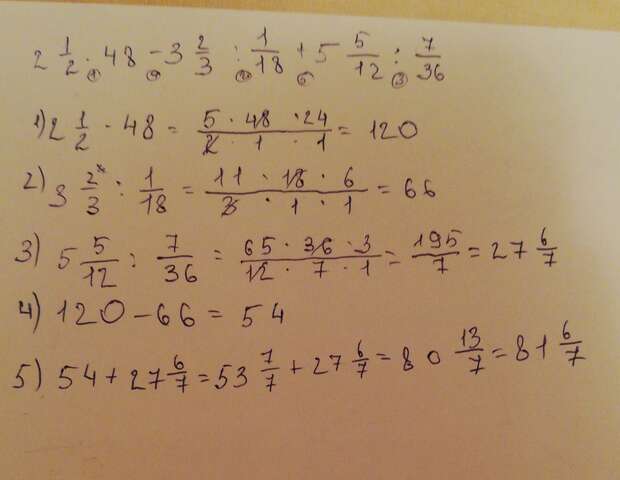 2 1/2 · 48 - 3 2/3 : 1/18 + 5 5/12 : 7/36
1) 2 1/2 · 48 = 5 · 48 · 24 / 2 · 1 · 1 = 120
2) 3 2/3 : 1/18 = 11 · 18 · 6 / 3 · 1 · 1 = 66
3) 5 5/12 : 7/36 = 65 · 36 · 3 / 12 · 7 · 1 = 195/7 = 27 6/7
4) 120 - 66 = 54
5) 54 + 27 6/7 = 53 7/7 + 27 6/7 = 80 13/7 = 81 6/7